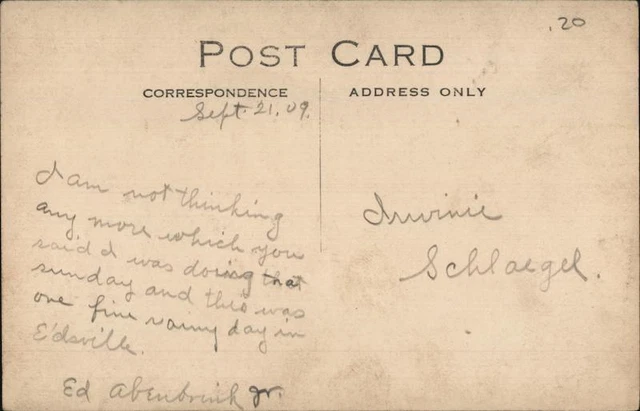 .20
POST CARD
CORRESPONDENCE
ADDRESS ONLY
Sept. 21, 09.
I am not thinking
any more which you
said I was doing that
sunday and this was
one fine rainy day in
E'dsville.
Ed Abenbrink Jr.
Irvinie
Schlaegel.